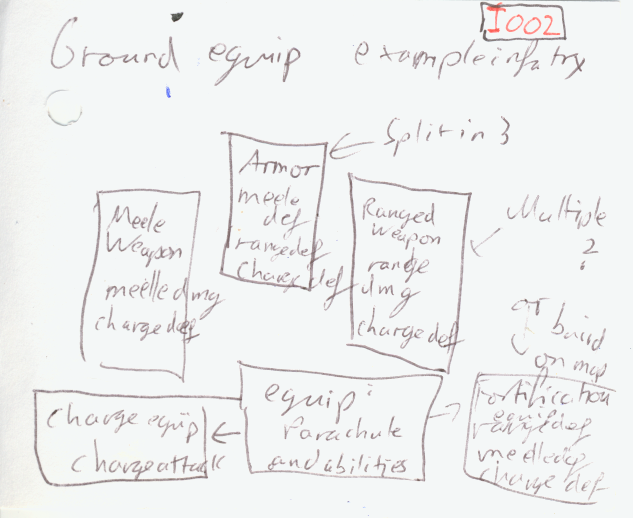 I002
Ground equip example infatry
Split in 3
Armor
meele
def
rangedef
charge def
Meele
Weapon
meelle dmg
charge def
Ranged
weapon
range
dmg
charge def
Multiple
?
or build
on map
equip:
Parachute
and abilities
charge equip
charge attack
Fortification
equip
rangedef
meeledef
charge def